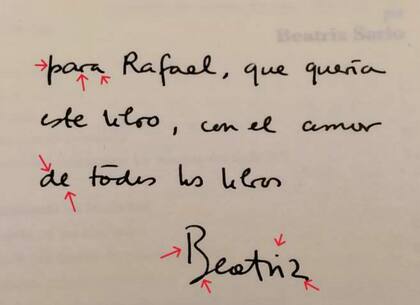 Beatriz Sarlo
para Rafael, que quería
este libro, con el amor
de todos los libros
Beatriz